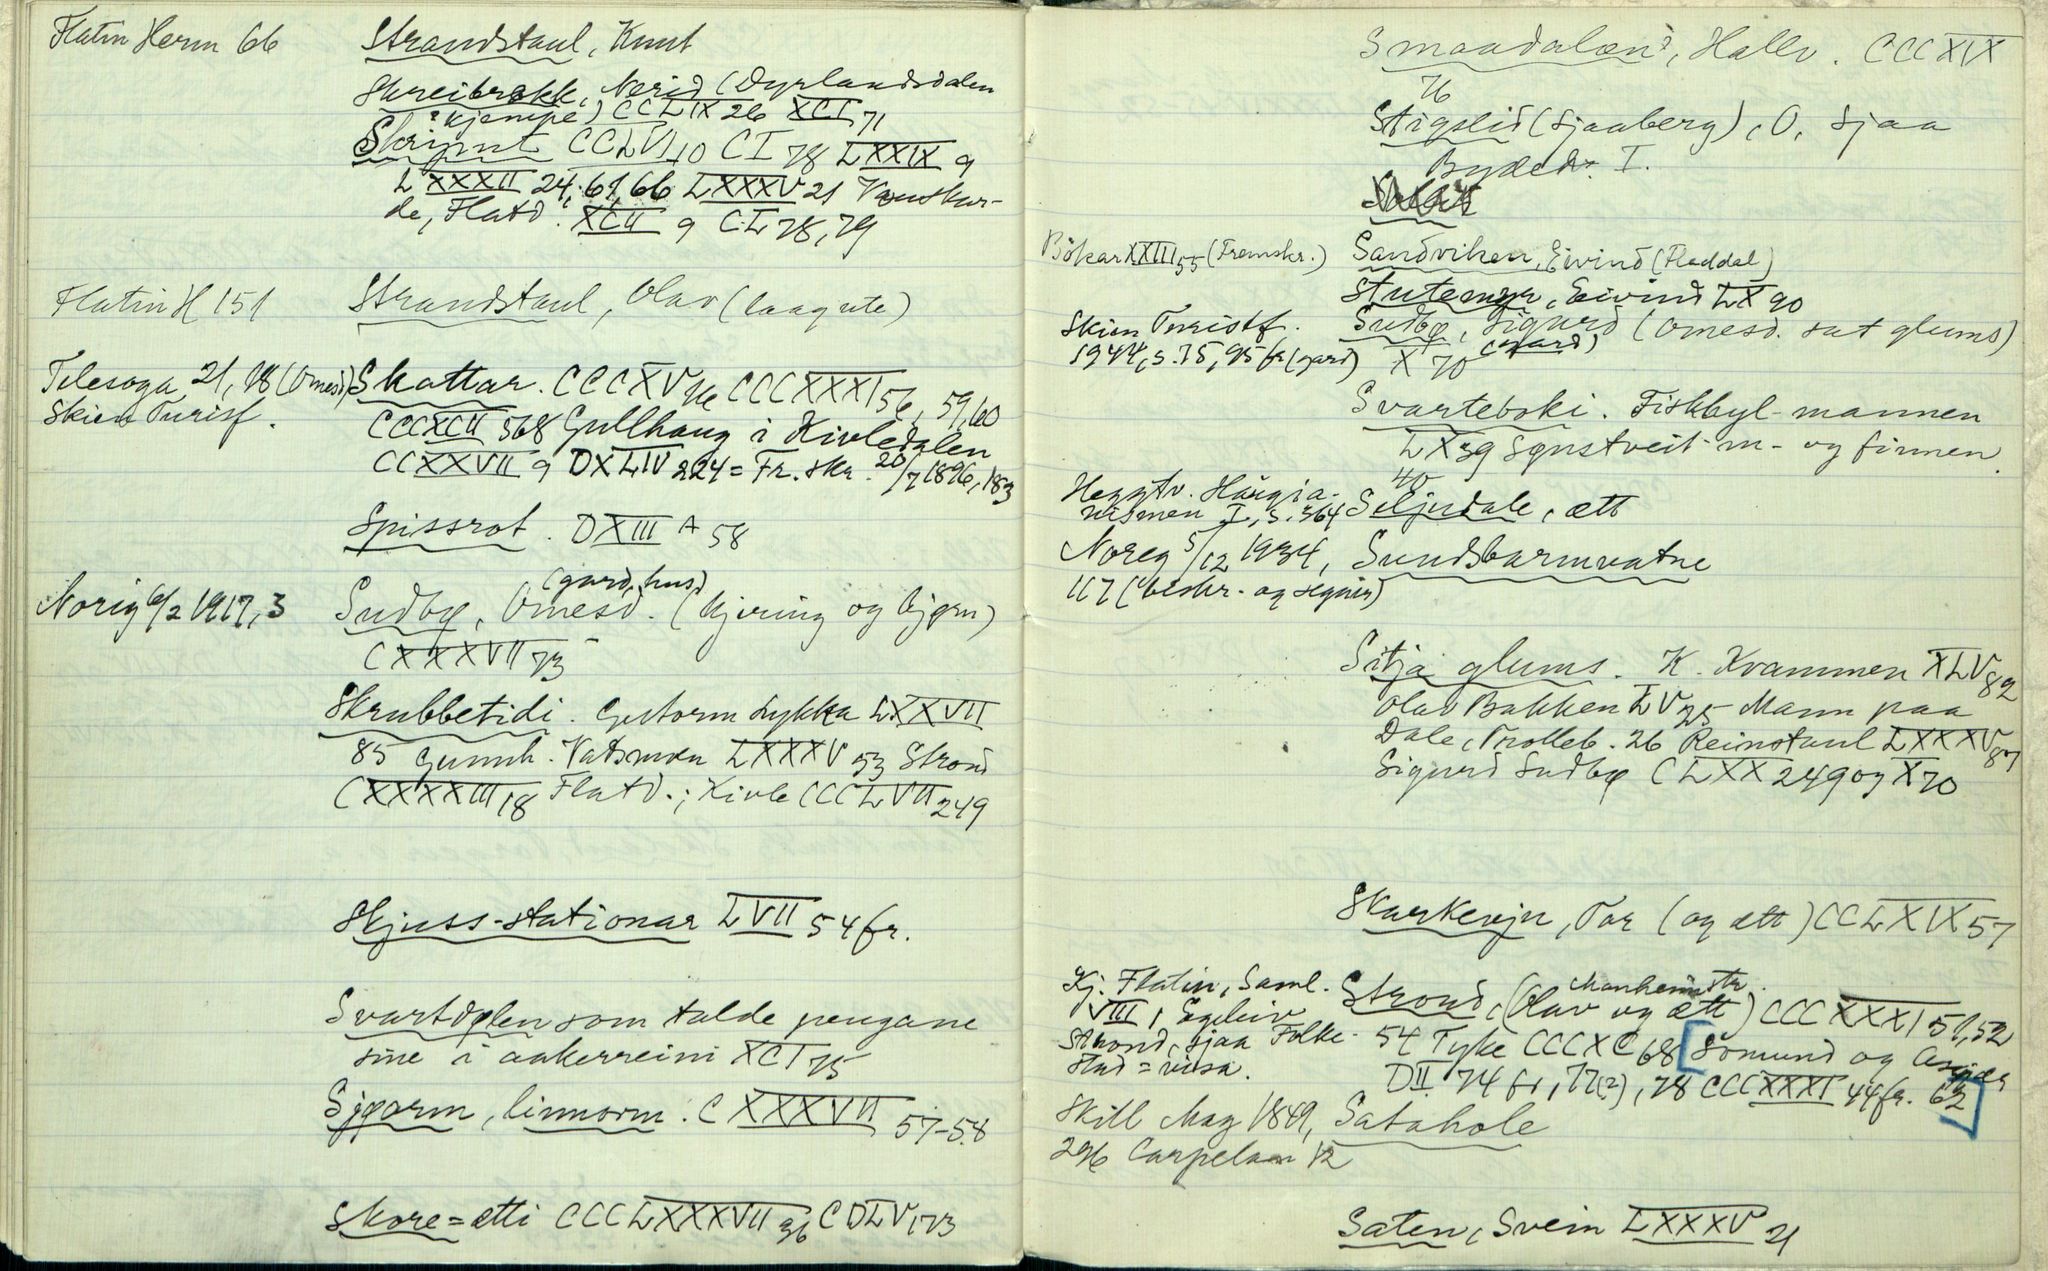 Flatin Herm 66 Strandstaul, Knut
Skreibrokk, Nerid (Dyrlandsdalen
? kjempe) CCLIX 26 XCI 71
Skrymt CCLVI 10 CI 78 LXXIX 9
LXXXII 24, 61, 66 LXXXV 21 Vonskur-
de, Flatd. XCII 9 CI 78, 79
Flatin H 151 Strandstaul, Olav (laagute)
Telesoga 21, 18 (Omesd) Skattar. CCCXV 76 CCCXXXI 56, 59, 60
Skien Turistf. CCCXCII 568 Gullhaug i Kivledalen
CCXXVII 9 DXLIV 224 = Fr. skr. 20/7 1896, 183
Spissrot. DXIII A 58
(gard, hus)
Norig 6/2 1917, 3 Sudbø, Omesd. (kjering og bjørn)
CXXXVII 73
Skrubbetidi. Guttorm Lykkja LXXVII
85 Gunnh. Vatsmoen LXXXV 53 Strond
CXXXXIII 18 Flatd.; Kivle CCCLVII 249
Skjuss-stationar LVII 54 fr.
Svartdølen som talde pengane
sine i aakerreini XCI 75
Sjøorm, linnorm. CXXXVII 57-58
Skore=ætti CCCLXXXVII 36 CDLV 173
Smaadalen, Hallv. CCCXIX
76
Stigslid (Sjaaberg), O, sjaa
Bydedr. I.
Bökar XXIII 55 (Fremskr.) Sandviken, Eivind (Fladdal)
Stutemyr, Eivind LX 90
Skien Turistf. Sudbø, Sigurd (Omesd. sat glums)
1944, s. 75, 95 fr (gard) X 70 (gard)
Svarteboki. Fiskbyl-mannen
LX 39 Synstveit-m- og finnen.
40
Heggtv. Haugia-
nismen I, s. 364 Seljudale, ætt
Noreg 5/12 1934, Sundsbarmvatne
117 (beskr. og segnir)
Sitja glums. K. Kvammen XLV 82
Olav Bakken LV 25 Mann paa
Dale, Trolleb. 26 Reinstaul LXXXV 87
Sigurd Sudbø CLXX 249 og X 70
Skarkeujn, Tor (og ætt) CCLXIX 57
Kj. Flatin, Saml. Strond, (Olav og ætt) CCCXXXI 51, 52
VIII, Egeleiv
Strond, sjaa Folke- 54 Tyke CCCXC 68 [Somund og Asgier
Stad = visa. DII 74 fr, 77(?), 78 CCCXXXI 44 fr. 62]
Skill Mag 1849, Satahole
296 Carpelan 12
Saten, Svein LXXXV 21